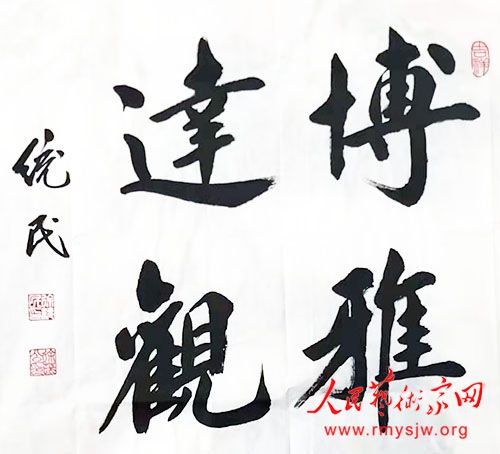 吉祥
博雅
達觀
統民
人民藝術家网
www.rmysjw.org